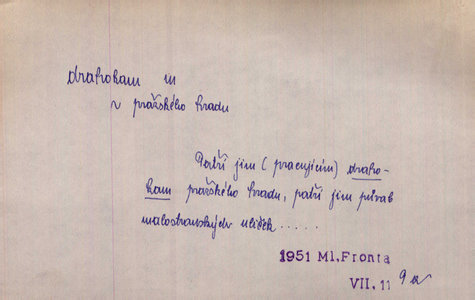 drahokam m
~ pražského hradu
Patří jim (pracujícím) draho-
kam pražského hradu, patří jim půvab
malostranských uliček.....
1951 Ml.Fronta
VII. 11 9a